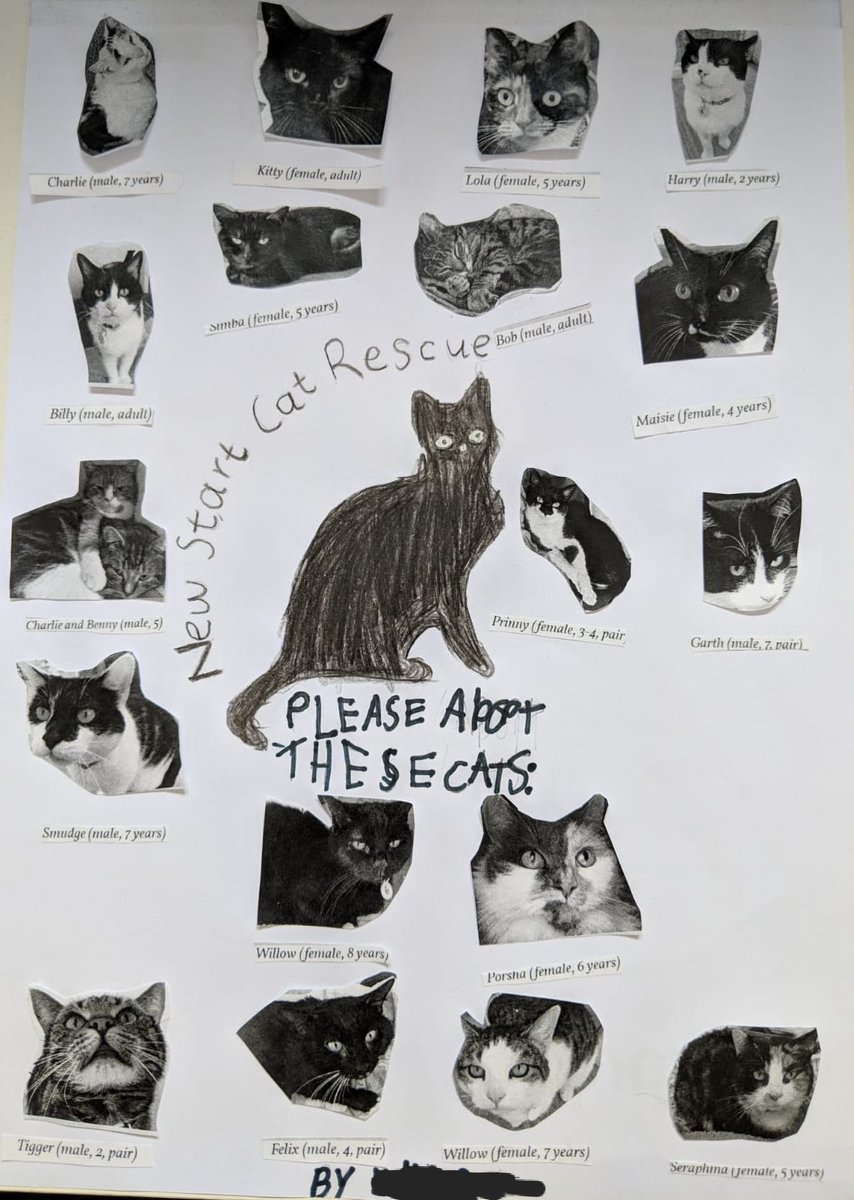 Charlie (male, 7 years)
Kitty (female, adult)
Lola (female, 5 years)
Harry (male, 2 years)
Simba (female, 5 years)
Bob (male, adult)
Billy (male, adult)
Maisie (female, 4 years)
New Start Cat Rescue
Charlie and Benny (male, 5)
Prinny (female, 3-4, pair
Garth (male, 7, pair)
PLEASE Adopt
THESE CATS:
Smudge (male, 7 years)
Willow (female, 8 years)
Porsha (female, 6 years)
Tigger (male, 2, pair)
Felix (male, 4, pair)
Willow (female, 7 years)
Seraphina (female, 5 years)
BY